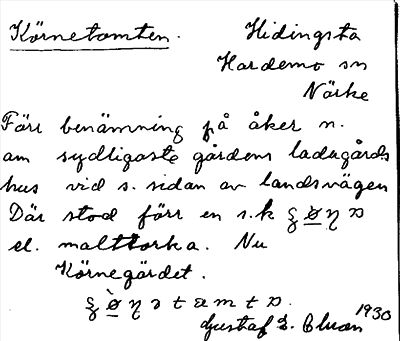 Körnetomten. Hidingsta
Hardemo sn
Närke
Förr benämning på åker n.
om sydligaste gårdens ladugårds
hus vid s. sidan av landsvägen
Där stod förr en s.k
el. malttorka. Nu
Körnegärdet.
1930
Gustaf